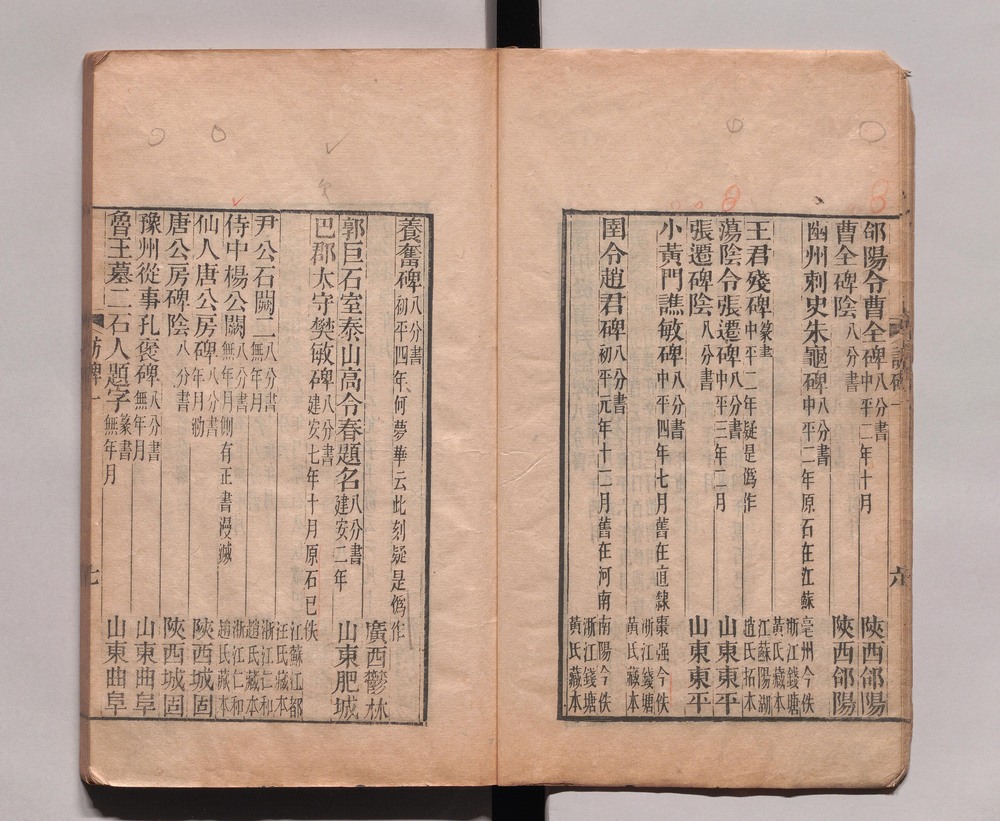 郃陽令曹全碑八分書中平二年十月 陝西郃陽
曹全碑陰八分書 陝西郃陽
豳州刺史朱龜碑八分書中平二年原石在江蘇亳州今佚 浙江錢塘黃氏藏本
王君殘碑篆書中平二年疑是僞作 江蘇陽湖趙氏拓本
蕩陰令張遷碑八分書中平三年二月 山東東平
張遷碑陰八分書 山東東平
小黃門譙敏碑八分書中平四年七月舊在直隸棗强今佚 浙江錢塘黃氏藏本
圉令趙君碑八分書初平元年十二月舊在河南南陽今佚 浙江錢塘黃氏藏本
六
養奮碑八分書初平四年何夢華云此刻疑是僞作 廣西鬱林
郭巨石室泰山高令春題名八分書建安二年 山東肥城
巴郡太守樊敏碑八分書建安七年十月原石已佚 江蘇江都汪氏藏本
尹公石闕二八分書無年月 浙江仁和趙氏藏本
侍中楊公闕八分書無年月側有正書漫滅 浙江仁和趙氏藏本
仙人唐公房碑八分書年月泐 陝西城固
唐公房碑陰八分書 陝西城固
豫州從事孔褒碑八分書無年月 山東曲阜
魯王墓二石人題字篆書無年月 山東曲阜
訪碑一
七